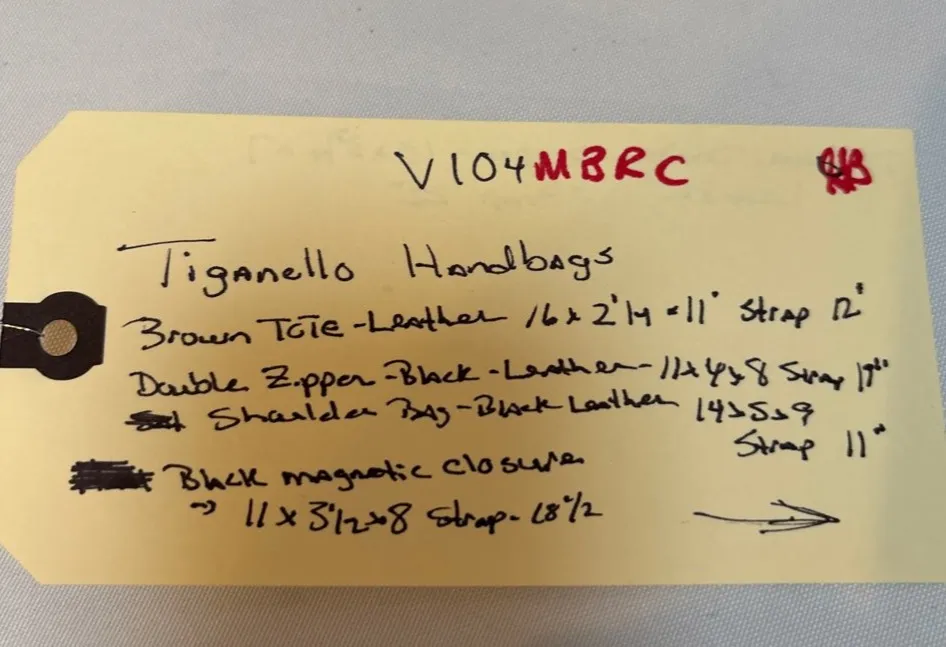 V104MBRC
Tiganello Handbags
Brown Tote-Leather 16 x 2 1/4 x 11" Strap 12"
Double Zipper-Black-Leather-11x4x8 Strap
Shoulder Bag-Black Leather 14x5x9
Strap 11"
Black magnetic closure
→ 11 x 3 1/2 x 8 Strap- 18 1/2